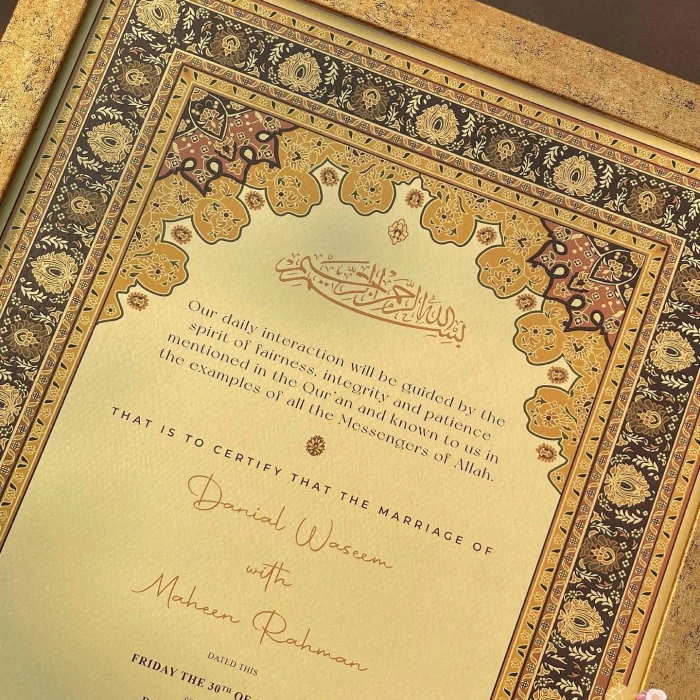 بسم الله الرحمن الرحيم
Our daily interaction will be guided by the
spirit of fairness, integrity and patience
mentioned in the Qur'an and known to us in
the examples of all the Messengers of Allah.
THAT IS TO CERTIFY THAT THE MARRIAGE OF
Danial Waseem
with
Maheen Rahman
DATED THIS
FRIDAY THE 30TH OF